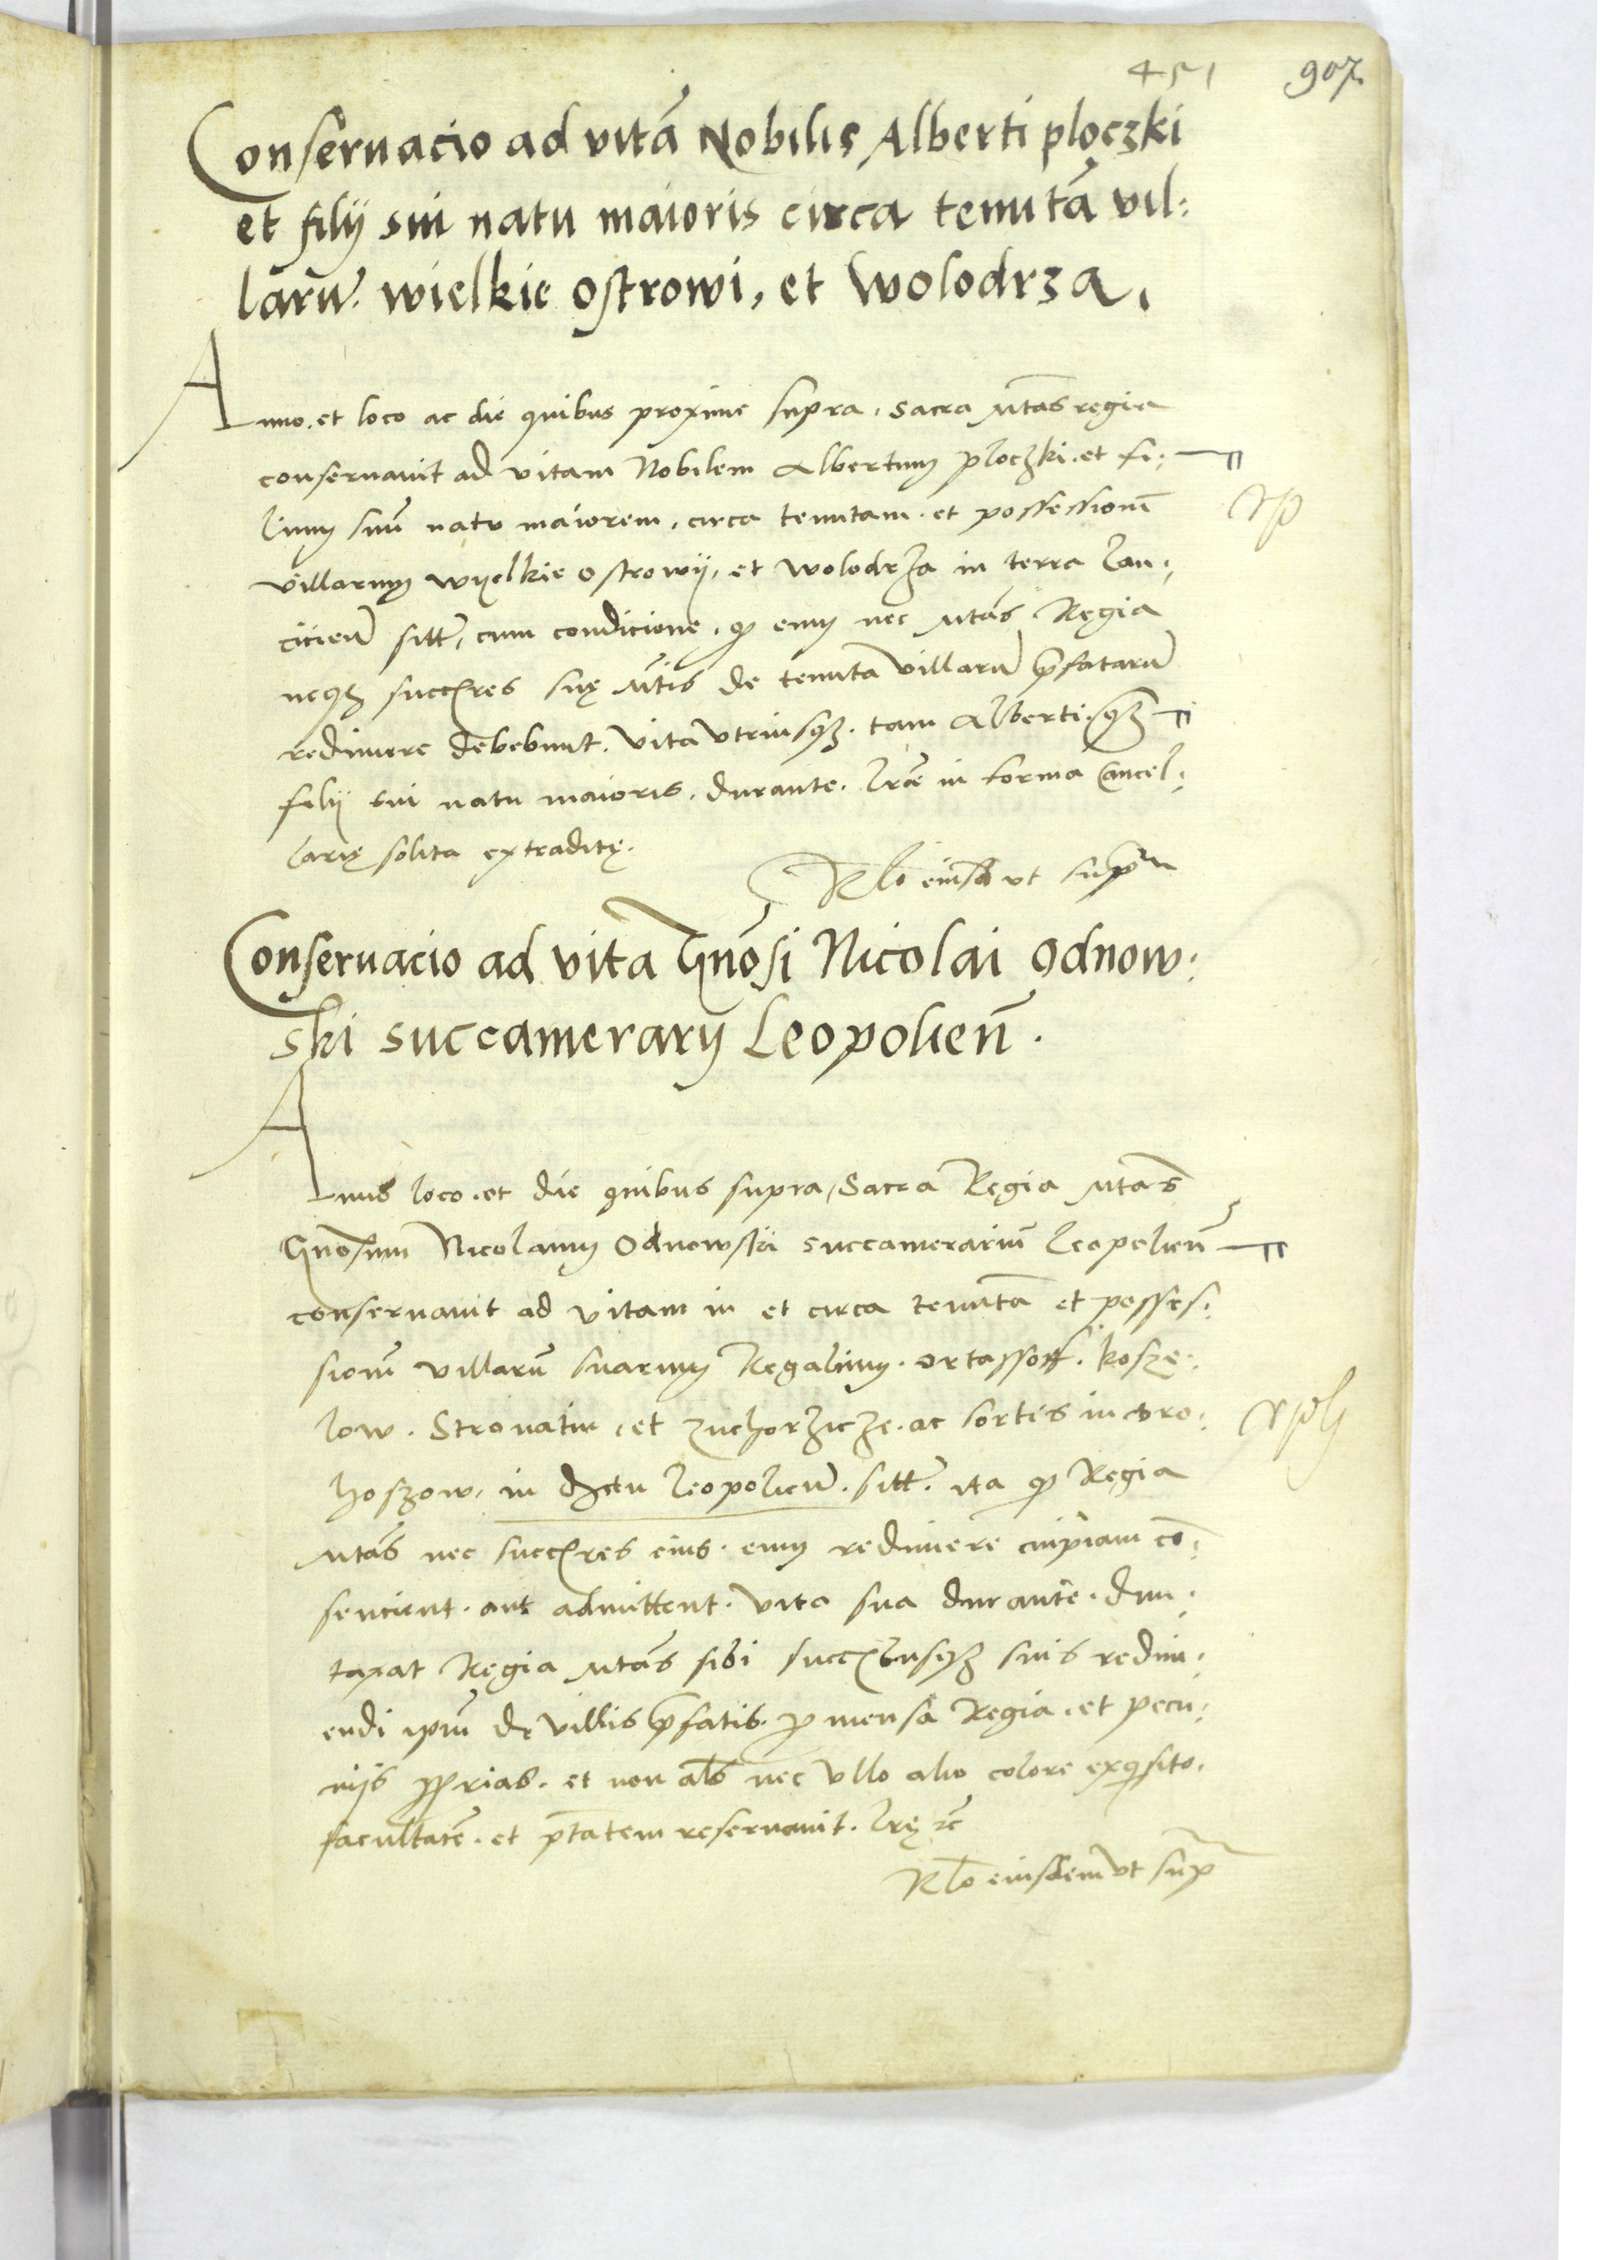 451 907
Conseruacio ad vitā Nobilis Alberti ploczki
et filij sui natu maioris circa tenutā vil:
larū. wielkie ostrowi, et wolodrza.
Anno. et loco ac die quibus proxime supra. Sacra Mtās regia
conseruauit ad vitam Nobilem Albertum ploczki. et fi:
lium suū natu maiorem, circa tenutam. et possessionē
villarum wyelkie ostrowij, et wolodrza in terra Lan:
cicieñ sitt, cum condicione. qp eum nec Mtās. Regia
neqz succres suę Mtis de tenuta villarū pfatarū
redimere debebunt. vita vtriusqz. tam Alberti. qz
filij sui natu maioris. durante. Lrae in forma Cancel:
larię solita extraditę.
Rlo eiusd vt supra
Conseruacio ad vitā Gnosi Nicolai Odnow:
ski succamerarij Leopolieñ.
Annis loco. et die quibus supra, Sacra Regia Mtās
Gnosum Nicolaum Odnowski succamerariū Leopolieñ
conseruauit ad vitam in et circa tenutā et posses:
sionē villarū suarum Regalium. ortassoff. kosze:
low. Stronatin, et zuchorzicze. ac sortis in Dro:
hoszow. in dctu Leopolieñ. sitt. ita qp Regia
Mtās nec succres eius. eum redimere cuipiam cō:
sencient. aut admittent. vita sua durante. dun:
taxat Regia Mtās sibi succbusqz suis redim:
endi ipm de villis pfatis. p mensa Regia. et pecu:
nijs pprias. et non als nec vllo alio colore exqsito.
facultatē. et ptatem reseruauit. Lrę zc
Rlo eiusdem vt supr